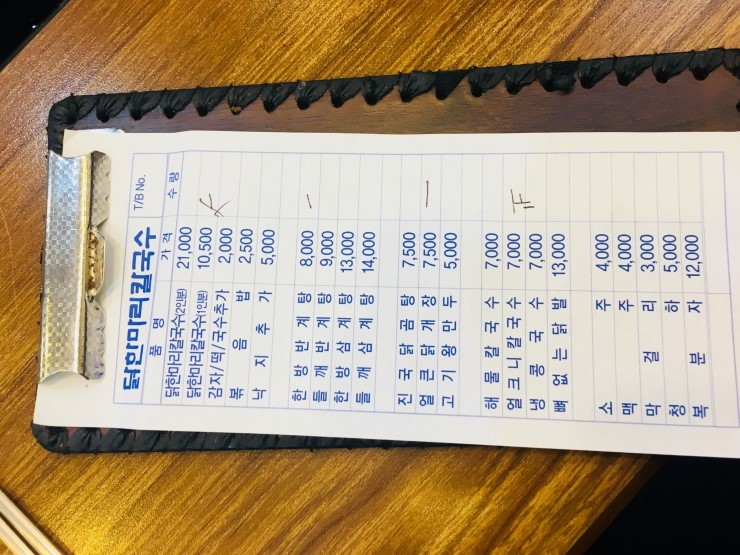 닭한마리칼국수 T/B No.
품 명 가 격 수 량
닭한마리칼국수(2인분) 21,000
닭한마리칼국수(1인분) 10,500
감자/떡/국수추가 2,000
볶음밥 2,500
낙지추가 5,000
한방반계탕 8,000 一
들깨반계탕 9,000
한방삼계탕 13,000
들깨삼계탕 14,000
진국닭곰탕 7,500
얼큰닭개장 7,500 一
고기왕만두 5,000
해물칼국수 7,000
얼크니칼국수 7,000 正
냉콩국수 7,000
뼈없는닭발 13,000
소주 4,000
맥주 4,000
막걸리 3,000
청하 5,000
복분자 12,000